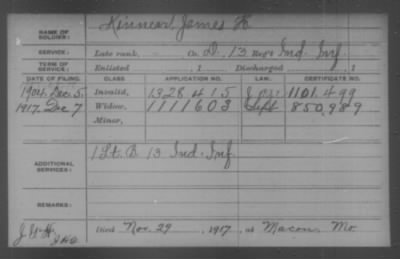 NAME OF SOLDIER: Kinnear James H
SERVICE: Late rank, Co. D, 13 Reg't Ind. Inf.
TERM OF SERVICE: Enlisted , 1 Discharged , 1
DATE OF FILING. CLASS. APPLICATION NO. LAW. CERTIFICATE NO.
1904 Dec. 5 Invalid, 1328415 1101.499
1917. Dec 7 Widow, 1111603 Sept 850,989
Minor,
ADDITIONAL SERVICES: 1 Lt. B 13 Ind. Inf
REMARKS:
Died Nov. 29, 1917, at Macon, Mo.